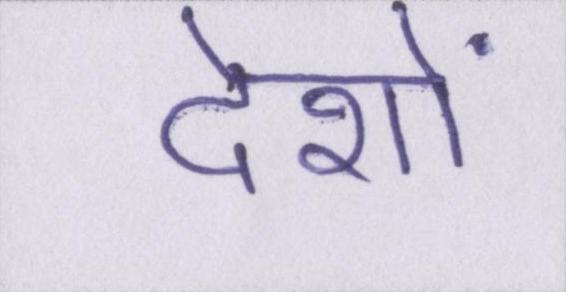 देशों